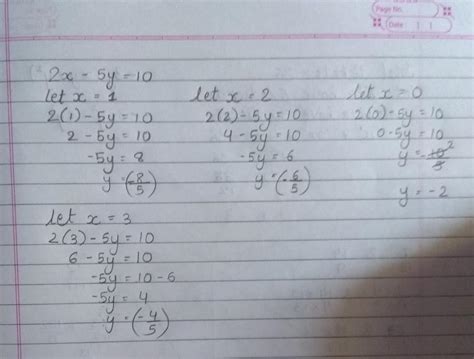 Page No.
Date: | |
2x - 5y = 10
let x = 1
2(1) - 5y = 10
2 - 5y = 10
-5y = 8
y = (-8/5)
let x = 2
2(2) - 5y = 10
4 - 5y = 10
-5y = 6
y = (-6/5)
let x = 0
2(0) - 5y = 10
0 - 5y = 10
y = -10/5 2
y = -2
let x = 3
2(3) - 5y = 10
6 - 5y = 10
-5y = 10 - 6
-5y = 4
y = (-4/5)